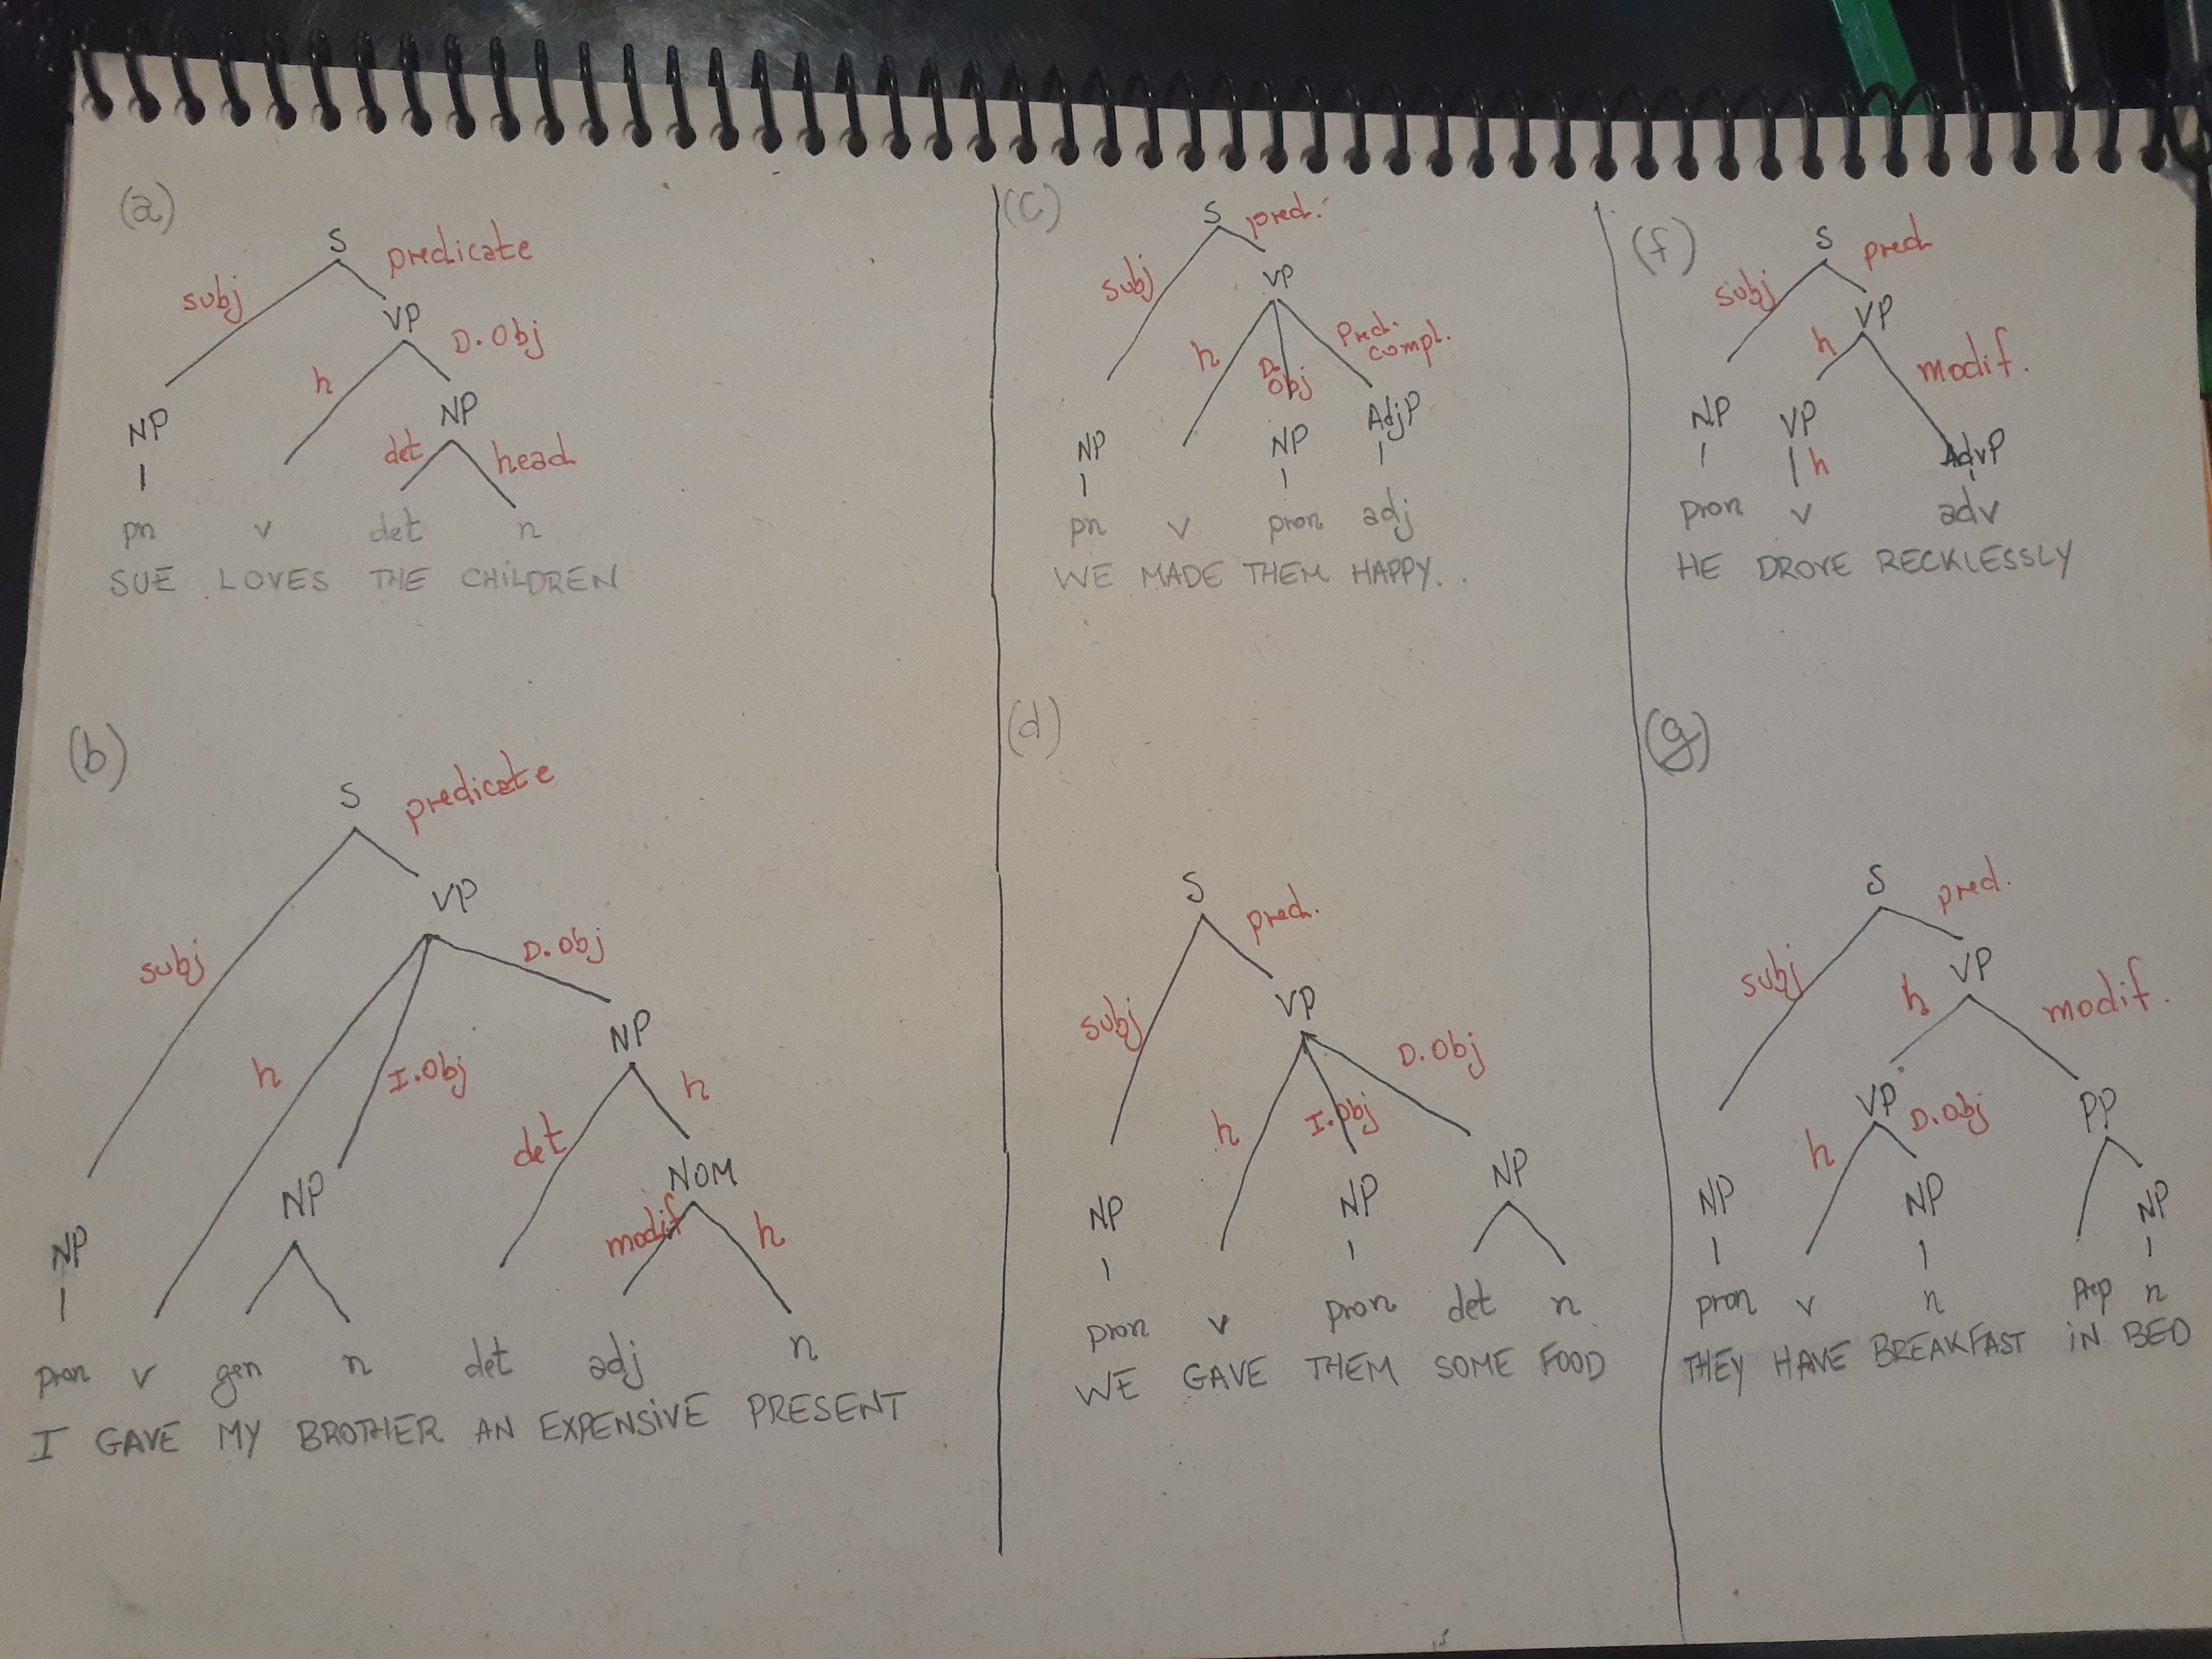 (a)
S
subj predicate
VP
h D.Obj
NP NP
det head
pn v det n
SUE LOVES THE CHILDREN
(b)
S
subj predicate
VP
h I.Obj D.Obj
NP
det h
NP NOM
modif h
NP
pron v gen n det adj n
I GAVE MY BROTHER AN EXPENSIVE PRESENT
(c)
S
subj pred.
VP
h D.Obj Pred. compl.
NP NP AdjP
pn v pron adj
WE MADE THEM HAPPY.
(d)
S
subj pred.
VP
h I.Obj D.Obj
NP NP NP
pron v pron det n
WE GAVE THEM SOME FOOD
(f)
S
subj pred
VP
h modif.
NP VP AdvP
h
pron v adv
HE DROVE RECKLESSLY
(g)
S
subj pred.
VP
h modif.
VP PP
h D.Obj
NP NP NP
pron v n prep n
THEY HAVE BREAKFAST IN BED